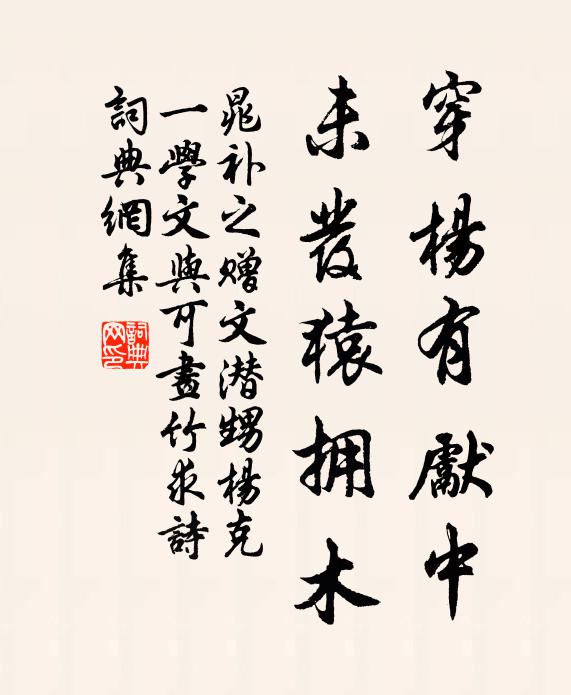 穿楊有獻中
未發猿拥木
晁补之赠文潜甥楊克
一學文與可畫竹求詩
詞典網集
詞典网印